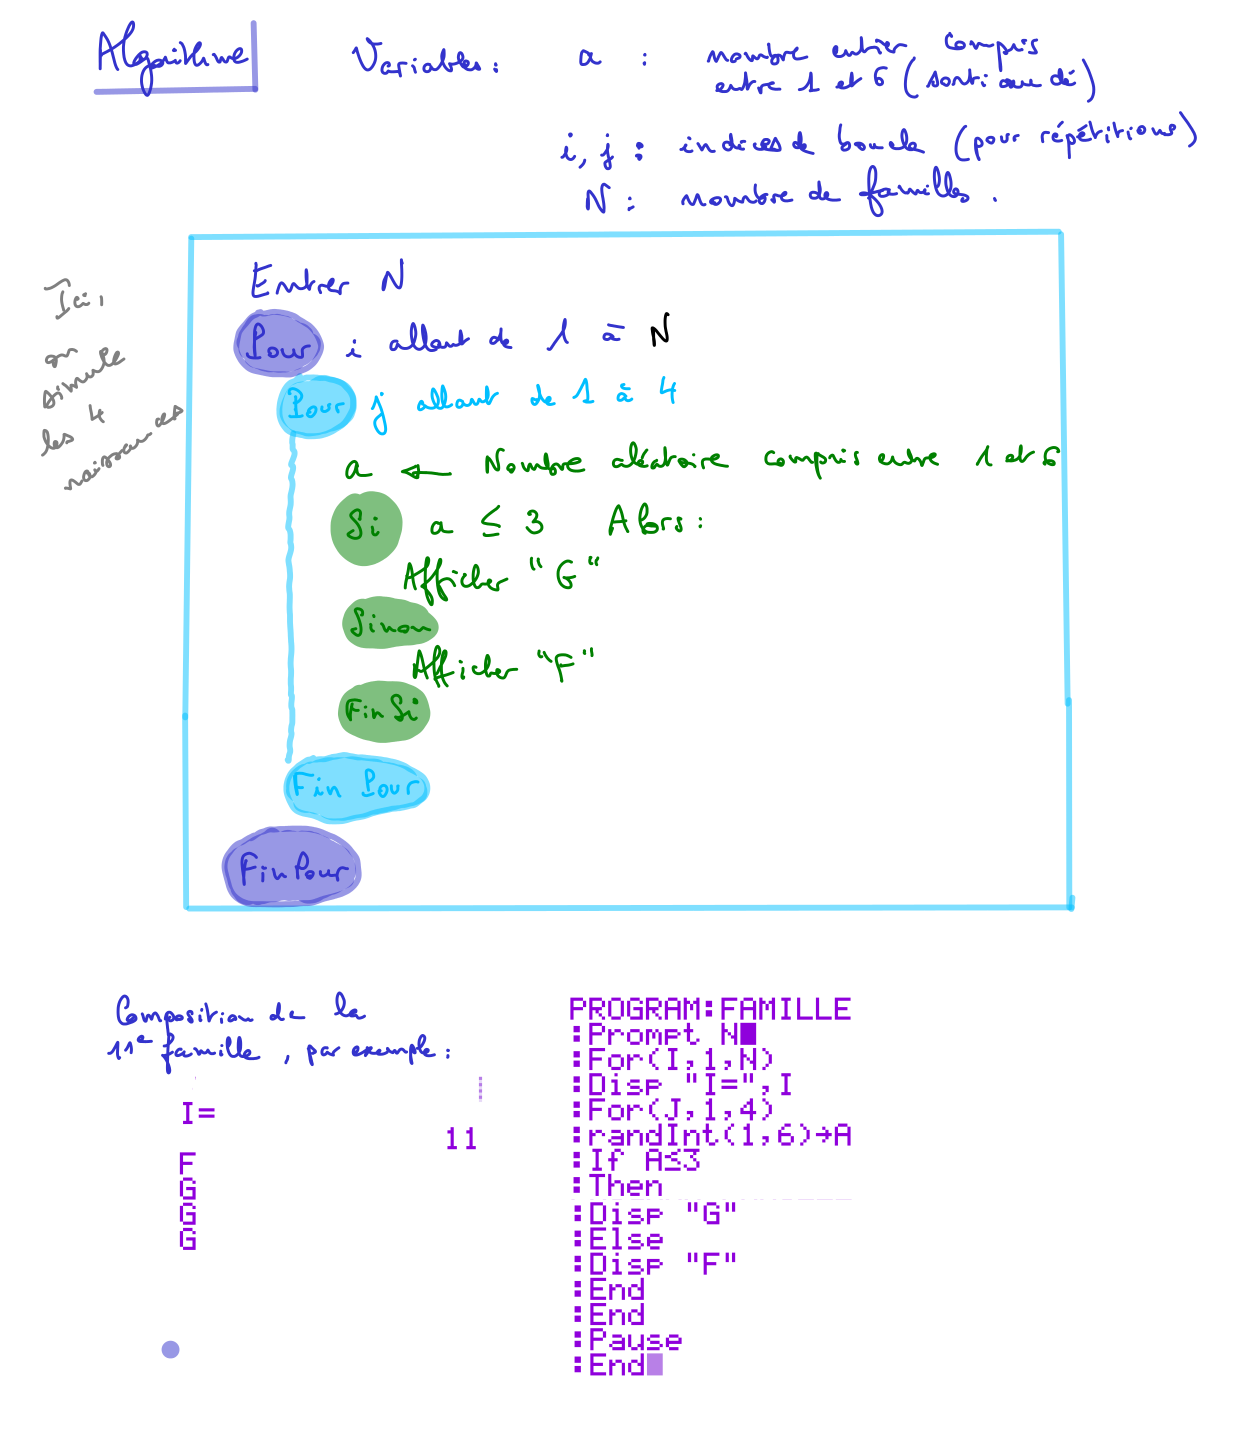 Algorithme
Variables: a : nombre entier compris
entre 1 et 6 (sorti au dé)
i, j : indices de boucle (pour répétitions)
N : nombre de familles.
Entrer N
Pour i allant de 1 à N
Pour j allant de 1 à 4
a ← Nombre aléatoire compris entre 1 et 6
Si a ≤ 3 Alors :
Afficher "G"
Sinon
Afficher "F"
Fin Si
Fin Pour
Fin Pour
Ici,
on
simule
les 4
naissances
Composition de la
11e famille, par exemple :
I=
11
F
G
G
G
PROGRAM:FAMILLE
:Prompt N
:For(I,1,N)
:Disp "I=",I
:For(J,1,4)
:randInt(1,6)→A
:If A≤3
:Then
:Disp "G"
:Else
:Disp "F"
:End
:End
:Pause
:End